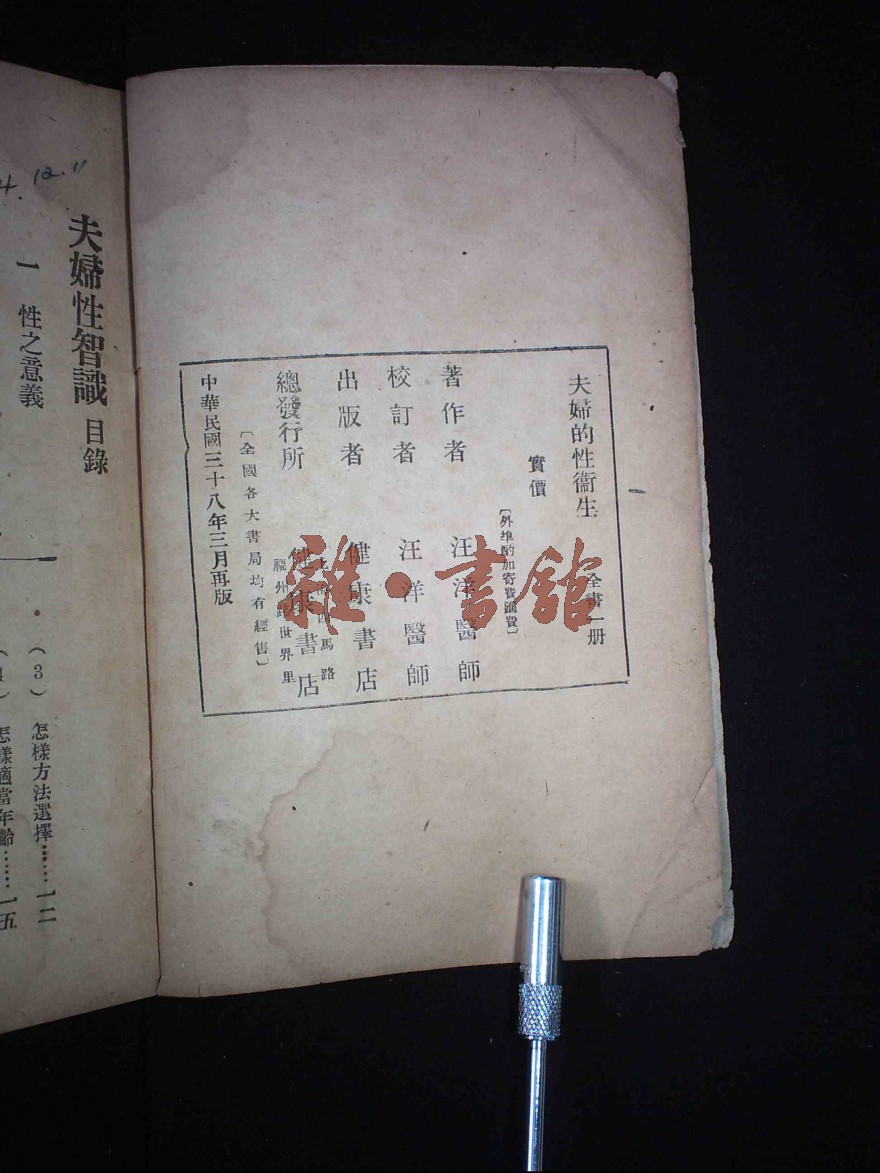 夫婦的性衞生 全書一册
實價
〔外埠酌加寄費匯費〕
著作者 汪洋醫師
校訂者 汪洋醫師
出版者 健康書店
總發行所 健康書店
馬路
福州路世界里
〔全國各大書局均有經售〕
中華民國三十八年三月再版
雜·書館
4.12.11
夫婦性智識 目錄
一 性之意義
(3) 怎樣方法選擇……一二
怎樣適當年齡……一五